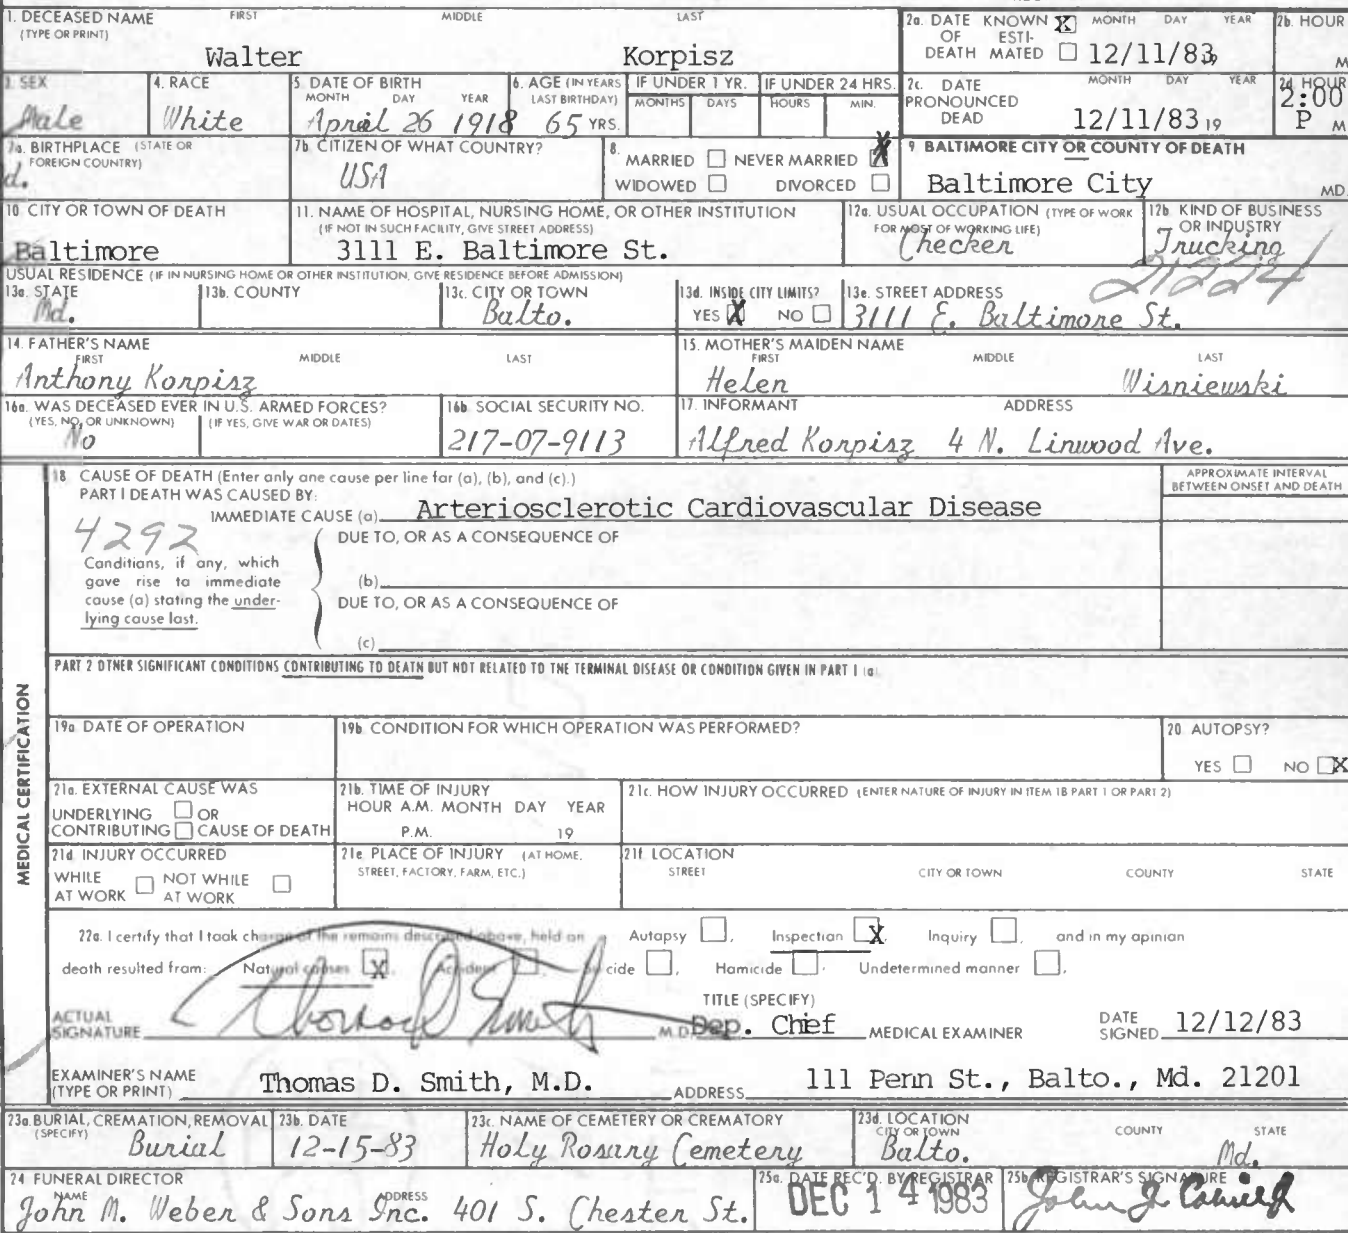 1. DECEASED NAME FIRST MIDDLE LAST
(TYPE OR PRINT)
Walter Korpisz
2a. DATE KNOWN X MONTH DAY YEAR
OF ESTI-
DEATH MATED 12/11/83
2b. HOUR
M
3. SEX
Male
4. RACE
White
5. DATE OF BIRTH
MONTH DAY YEAR
April 26 1918
6. AGE (IN YEARS
LAST BIRTHDAY)
65 YRS.
IF UNDER 1 YR.
MONTHS DAYS
IF UNDER 24 HRS.
HOURS MIN.
2c. DATE MONTH DAY YEAR
PRONOUNCED
DEAD 12/11/83 19
2d. HOUR
2:00
P M
7a. BIRTHPLACE (STATE OR
FOREIGN COUNTRY)
d.
7b. CITIZEN OF WHAT COUNTRY?
USA
8.
MARRIED NEVER MARRIED X
WIDOWED DIVORCED
9. BALTIMORE CITY OR COUNTY OF DEATH
Baltimore City MD.
10. CITY OR TOWN OF DEATH
Baltimore
11. NAME OF HOSPITAL, NURSING HOME, OR OTHER INSTITUTION
(IF NOT IN SUCH FACILITY, GIVE STREET ADDRESS)
3111 E. Baltimore St.
12a. USUAL OCCUPATION (TYPE OF WORK
FOR MOST OF WORKING LIFE)
Checker
12b. KIND OF BUSINESS
OR INDUSTRY
Trucking
21224
USUAL RESIDENCE (IF IN NURSING HOME OR OTHER INSTITUTION, GIVE RESIDENCE BEFORE ADMISSION)
13a. STATE
Md.
13b. COUNTY
13c. CITY OR TOWN
Balto.
13d. INSIDE CITY LIMITS?
YES X NO
13e. STREET ADDRESS
3111 E. Baltimore St.
14. FATHER'S NAME
FIRST MIDDLE LAST
Anthony Korpisz
15. MOTHER'S MAIDEN NAME
FIRST MIDDLE LAST
Helen Wisniewski
16a. WAS DECEASED EVER IN U.S. ARMED FORCES?
(YES, NO, OR UNKNOWN) (IF YES, GIVE WAR OR DATES)
No
16b. SOCIAL SECURITY NO.
217-07-9113
17. INFORMANT ADDRESS
Alfred Korpisz 4 N. Linwood Ave.
MEDICAL CERTIFICATION
18. CAUSE OF DEATH (Enter only one cause per line for (a), (b), and (c).)
PART I DEATH WAS CAUSED BY:
IMMEDIATE CAUSE (a) Arteriosclerotic Cardiovascular Disease
APPROXIMATE INTERVAL
BETWEEN ONSET AND DEATH
4292
DUE TO, OR AS A CONSEQUENCE OF
Conditions, if any, which
gave rise to immediate
cause (a) stating the under-
lying cause last.
(b)
DUE TO, OR AS A CONSEQUENCE OF
(c)
PART 2 OTHER SIGNIFICANT CONDITIONS CONTRIBUTING TO DEATH BUT NOT RELATED TO THE TERMINAL DISEASE OR CONDITION GIVEN IN PART I (a)
19a. DATE OF OPERATION
19b. CONDITION FOR WHICH OPERATION WAS PERFORMED?
20. AUTOPSY?
YES NO X
21a. EXTERNAL CAUSE WAS
UNDERLYING OR
CONTRIBUTING CAUSE OF DEATH
21b. TIME OF INJURY
HOUR A.M. MONTH DAY YEAR
P.M. 19
21c. HOW INJURY OCCURRED (ENTER NATURE OF INJURY IN ITEM 18 PART 1 OR PART 2)
21d. INJURY OCCURRED
WHILE NOT WHILE
AT WORK AT WORK
21e. PLACE OF INJURY (AT HOME,
STREET, FACTORY, FARM, ETC.)
21f. LOCATION
STREET CITY OR TOWN COUNTY STATE
22a. I certify that I took charge of the remains described above, held an Autopsy , Inspection X, Inquiry , and in my opinion
death resulted from: Natural causes X, Accident , Suicide , Homicide , Undetermined manner ,
ACTUAL
SIGNATURE Thomas D. Smith M.D.
TITLE (SPECIFY)
Dep. Chief MEDICAL EXAMINER
DATE
SIGNED 12/12/83
EXAMINER'S NAME
(TYPE OR PRINT) Thomas D. Smith, M.D. ADDRESS 111 Penn St., Balto., Md. 21201
23a. BURIAL, CREMATION, REMOVAL
(SPECIFY) Burial
23b. DATE
12-15-83
23c. NAME OF CEMETERY OR CREMATORY
Holy Rosary Cemetery
23d. LOCATION
CITY OR TOWN COUNTY STATE
Balto. Md.
24. FUNERAL DIRECTOR
NAME ADDRESS
John M. Weber & Sons Inc. 401 S. Chester St.
25a. DATE REC'D. BY REGISTRAR
DEC 14 1983
25b. REGISTRAR'S SIGNATURE
John J.